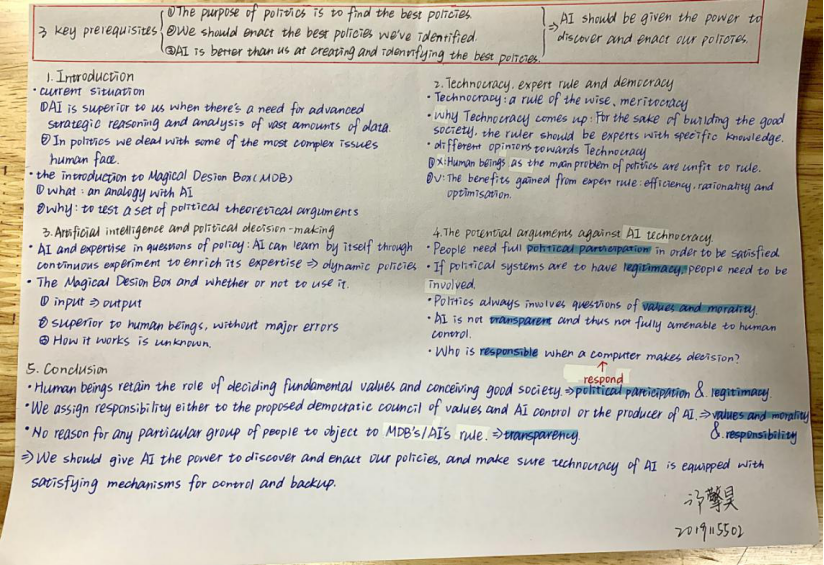 3 key prerequisites
①The purpose of politics is to find the best policies.
②We should enact the best policies we've identified.
③AI is better than us at creating and identifying the best policies.
⇒ AI should be given the power to
discover and enact our policies.
1. Introduction
• current situation
①AI is superior to us when there's a need for advanced
strategic reasoning and analysis of vast amounts of data.
② In politics we deal with some of the most complex issues
human face.
• the introduction to Magical Desion Box(MDB)
① what : an analogy with AI
②why: to test a set of political theoretical arguments
2. Technocracy, expert rule and democracy
• Technocracy: a rule of the wise, meritocracy
• why Technocracy comes up: For the sake of building the good
society, the ruler should be experts with specific knowledge.
• different opinions towards Technocracy
①x:Human beings as the main problem of politics are unfit to rule.
②v: The benefits gained from expert rule: efficiency, rationality and
optimisation.
3. Artificial intelligence and political decision-making
• AI and expertise in questions of policy: AI can learn by itself through
continuous experiment to enrich its expertise ⇒ dynamic policies
• The Magical Desion Box and whether or not to use it.
① input ⇒ output
② superior to human beings, without major errors
③ How it works is unknown.
4.The potential arguments against AI technocracy.
• People need full political participation in order to be satisfied
• If political systems are to have legitimacy, people need to be
involved.
• Politics always involves questions of values and morality.
• AI is not transparent and thus not fully amenable to human
control.
• Who is responsible when a computer makes decision?
respond
5. Conclusion
• Human beings retain the role of deciding fundamental values and conceiving good society.⇒political participation & legitimacy.
• We assign responsibility either to the proposed democratic council of values and AI control or the producer of AI.⇒values and morality
& responsibility
• No reason for any particular group of people to object to MDB's/AI's rule.⇒transparency.
⇒ We should give AI the power to discover and enact our policies, and make sure technocracy of AI is equipped with
satisfying mechanisms for control and backup.
2019115502